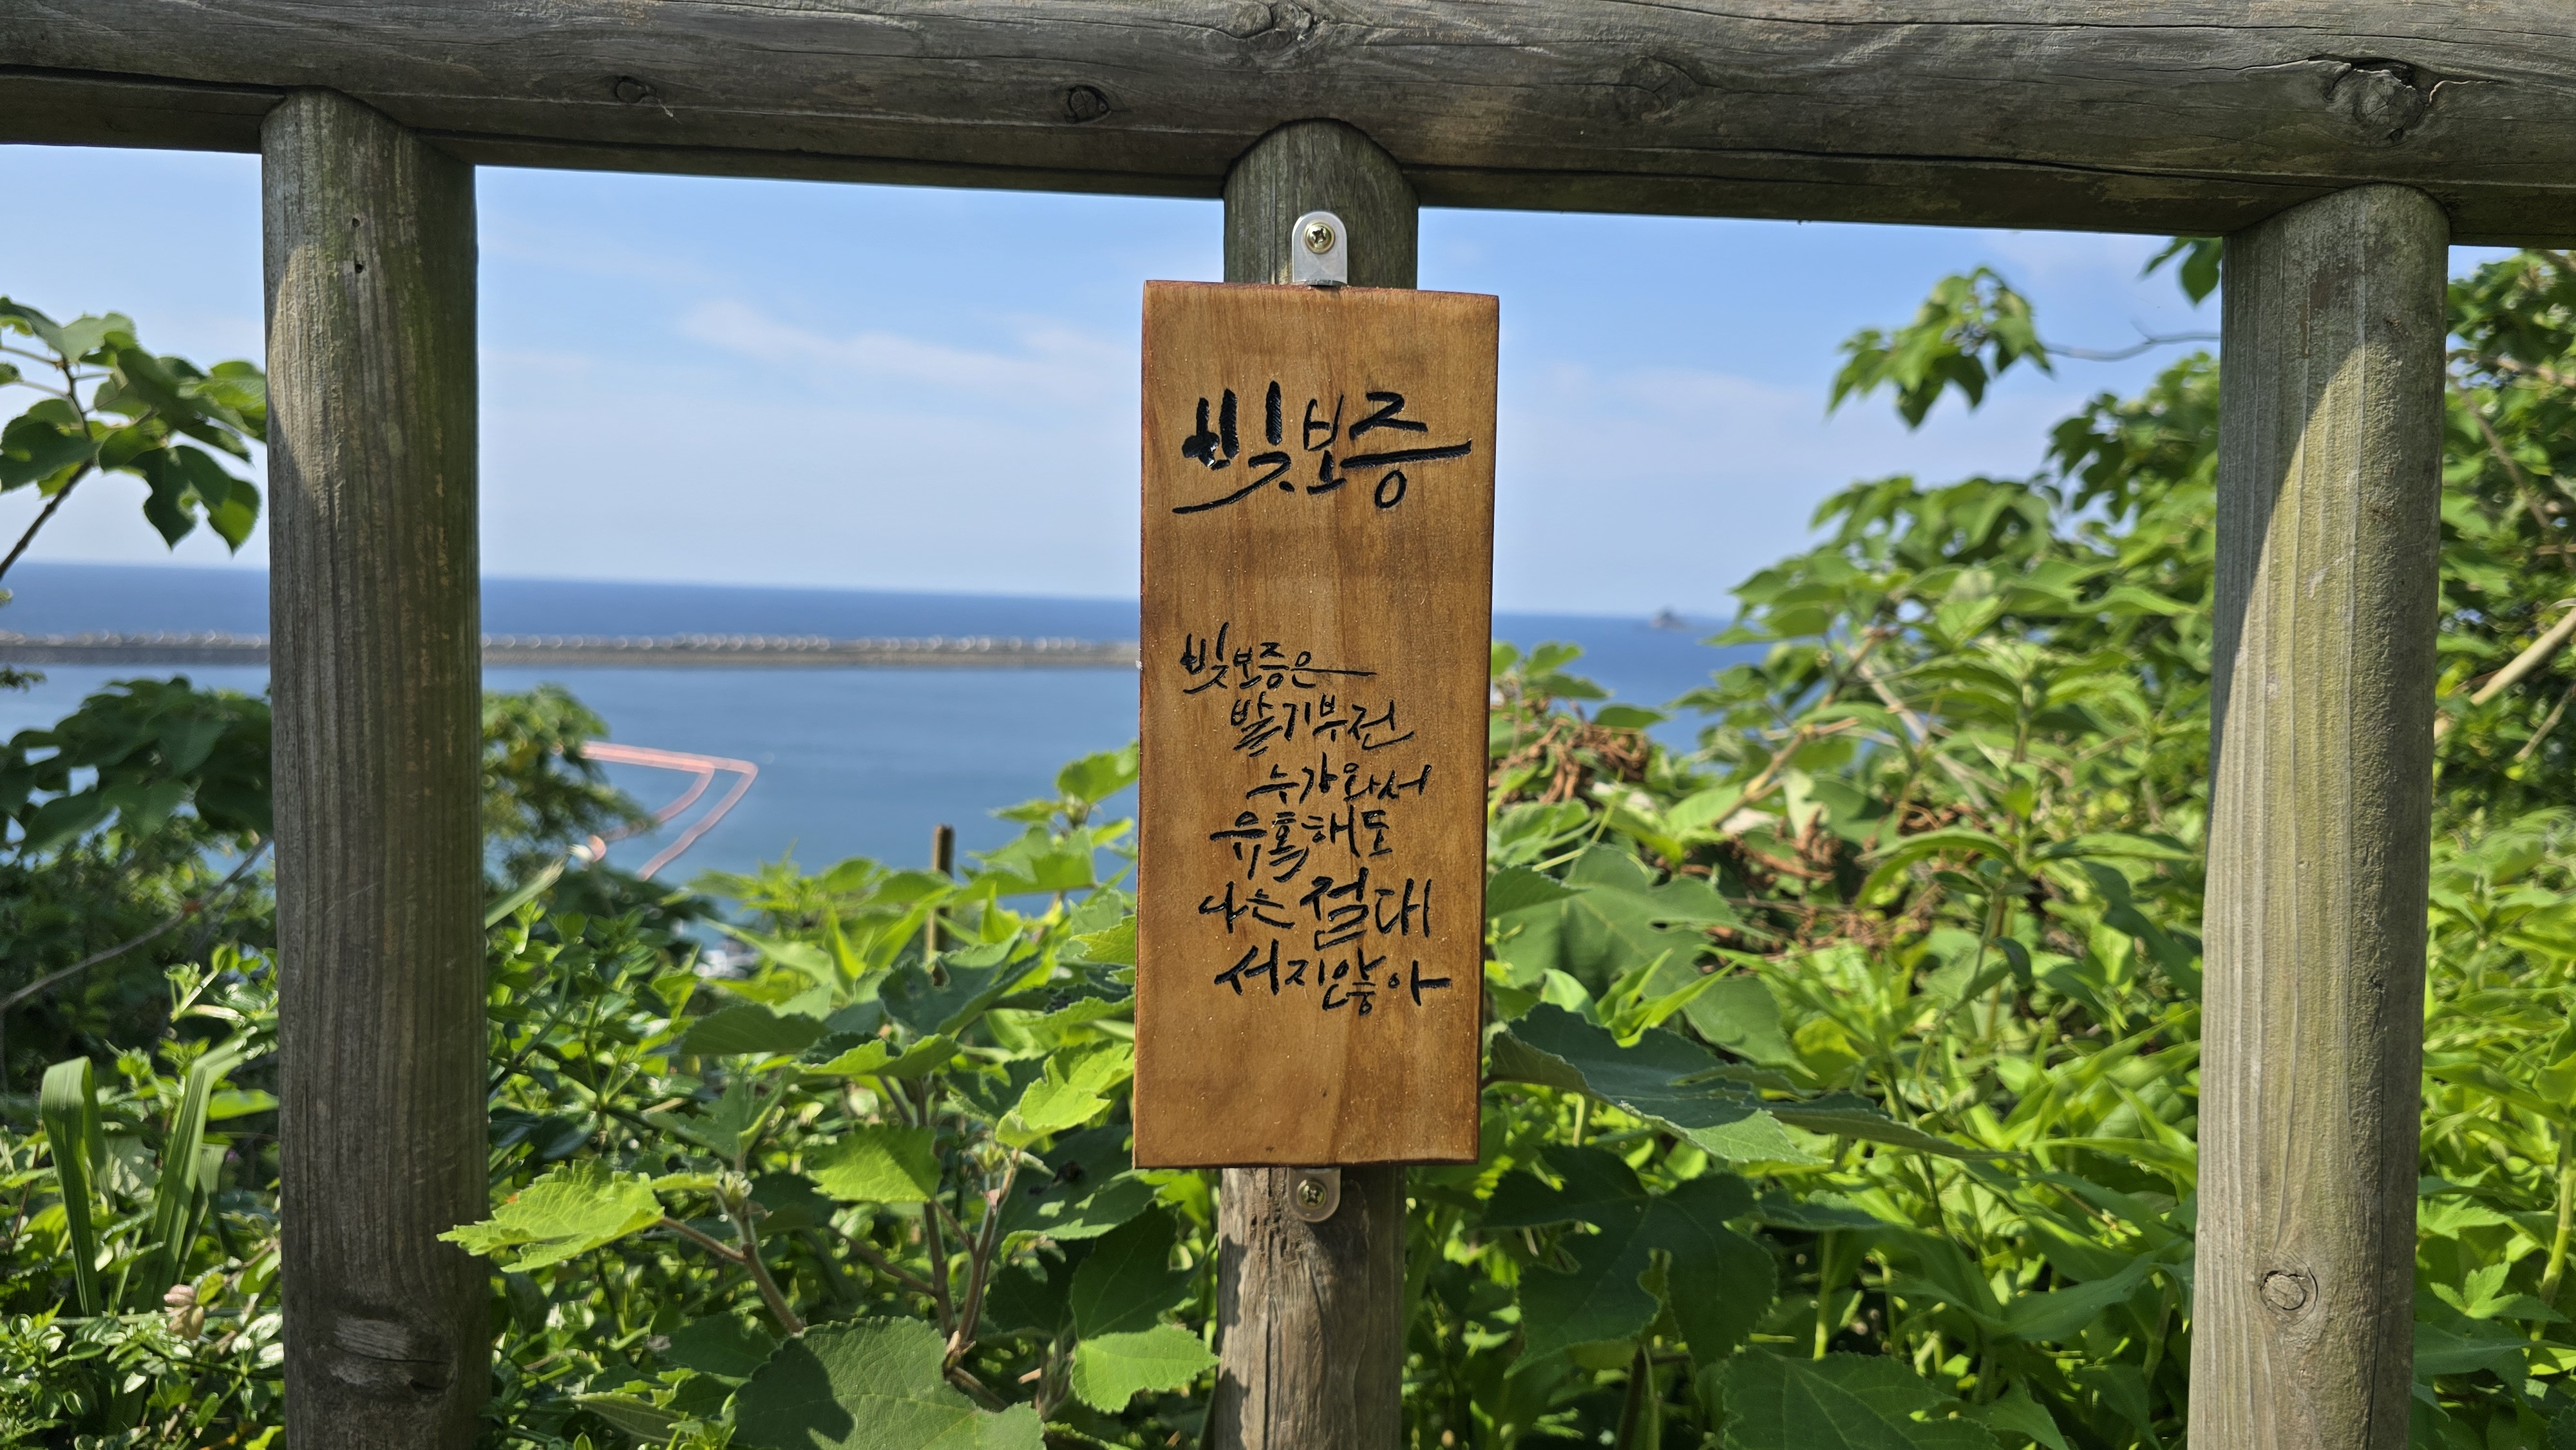 빚보증
빚보증은
발기부전
누가와서
유혹해도
나는 절대
서지않아